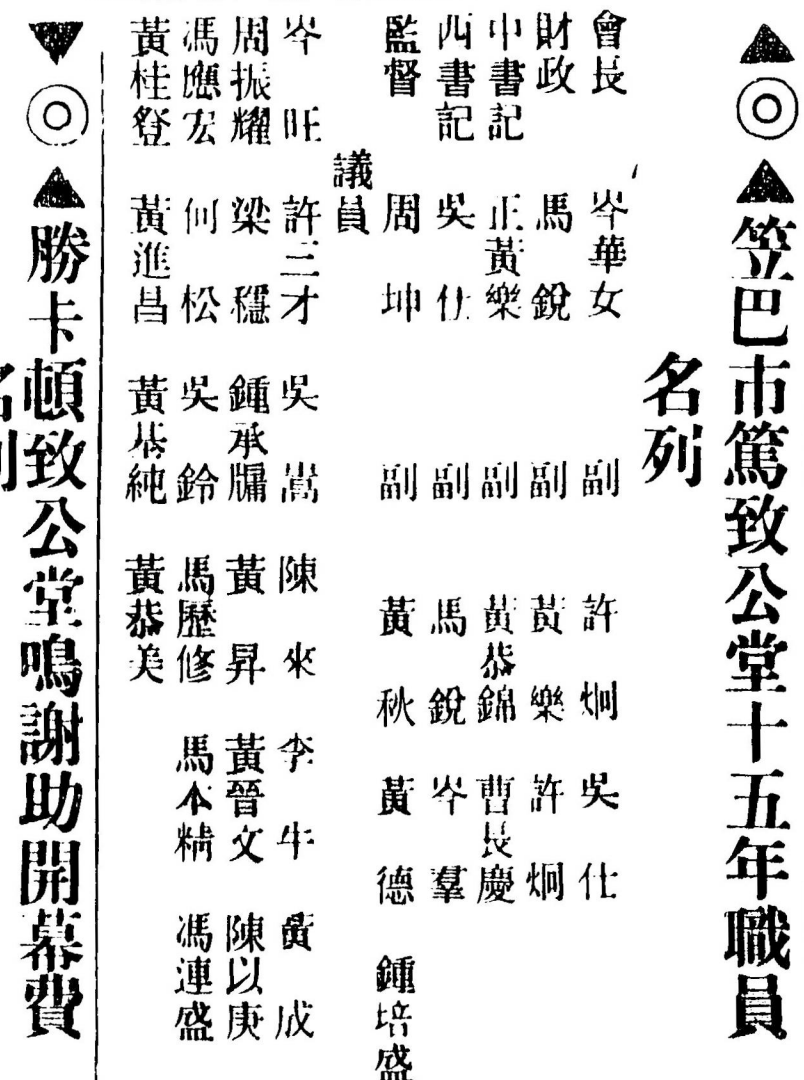 ▲◎▲笠巴市篤致公堂十五年職員
名列
會長 岑華女 副 許炯 吳仕
財政 馬銳 副 黃樂 許炯
中書記 正黃樂 副 黃恭錦 曹長慶
西書記 吳仕 副 馬銳 岑羣
監督 周坤 副 黃秋 黃德 鍾培盛
議員
岑旺 許三才 吳嵩 陳來 李牛 黃成
周振耀 梁穩 鍾承牗 黃昇 黃晉文 陳以庚
馮應宏 何松 吳鈴 馬歷修 馬本精 馮連盛
黃桂登 黃進昌 黃恭純 黃恭美
▼◎▲勝卡頓致公堂鳴謝助開幕費
名列